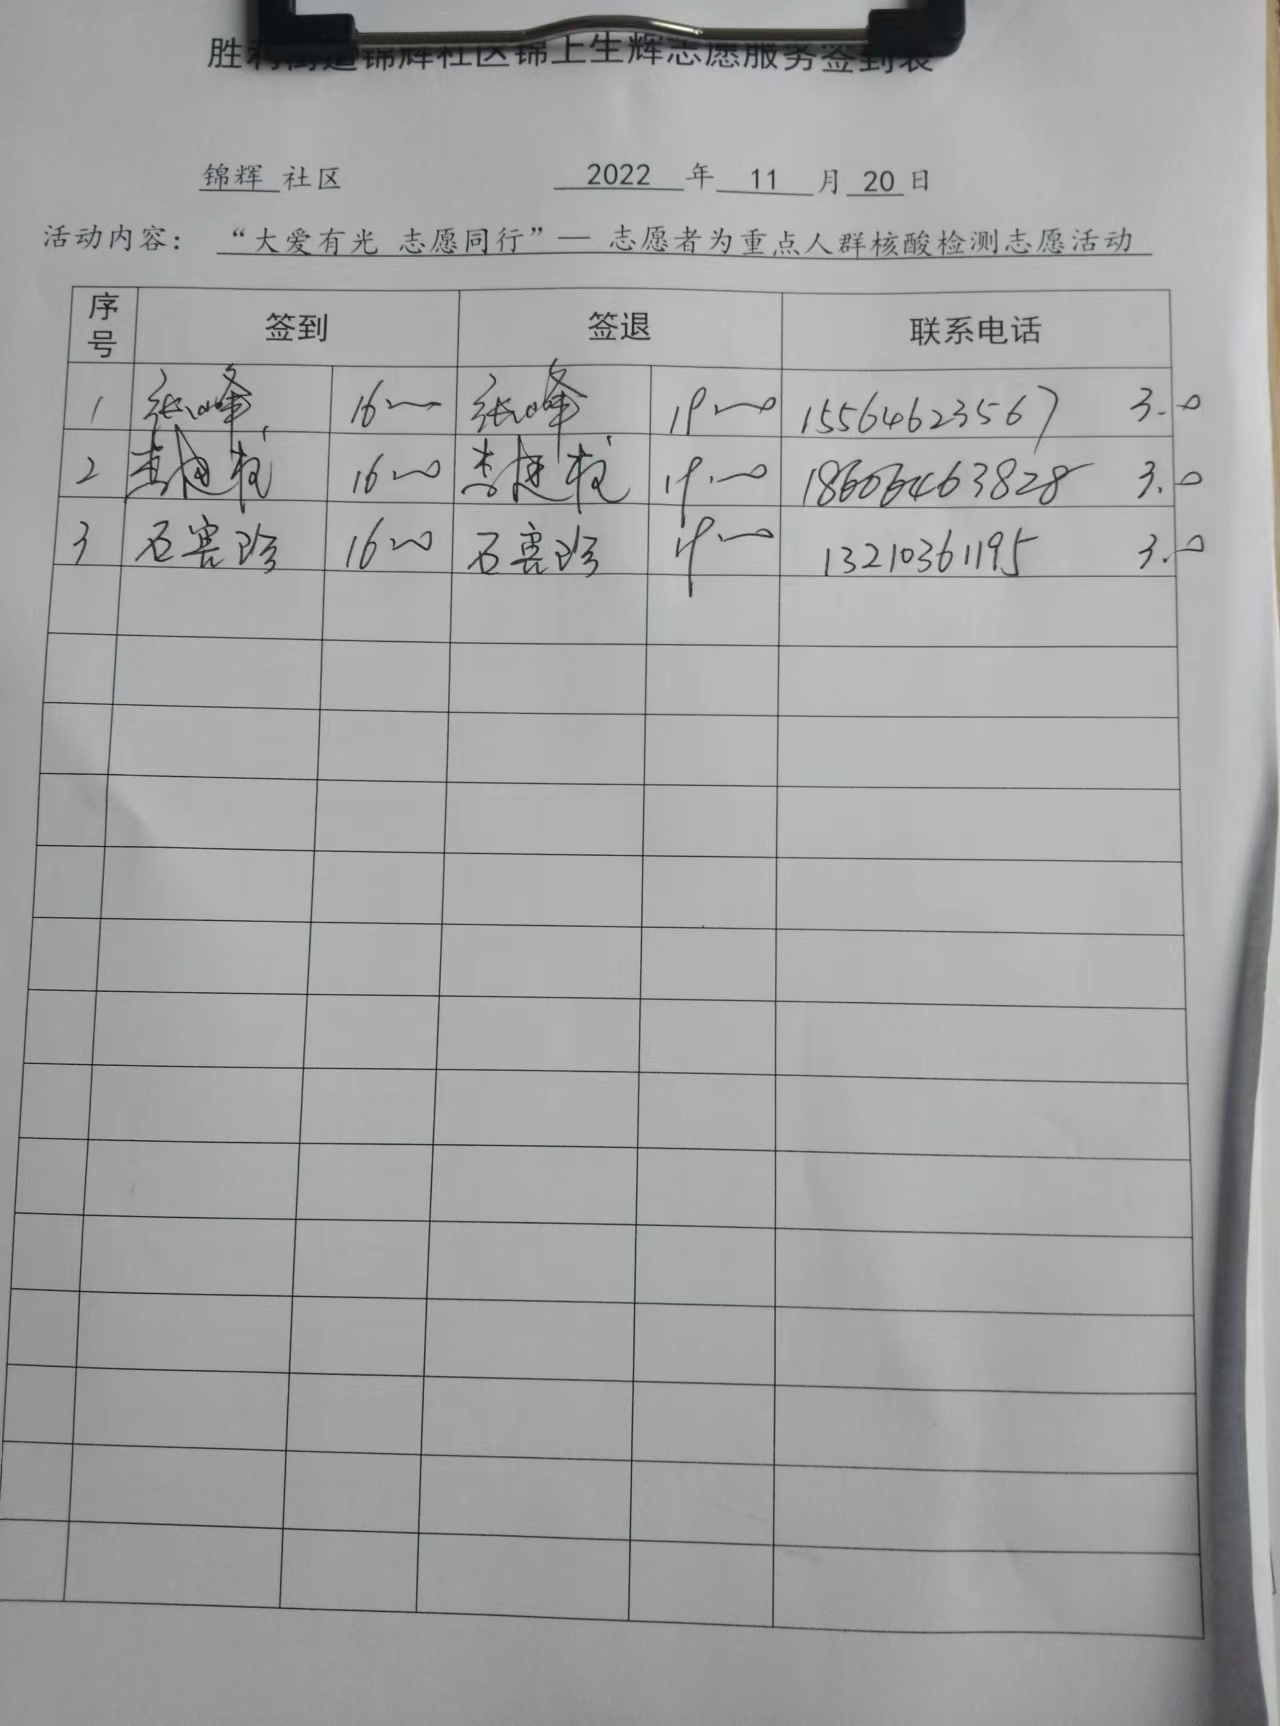 胜利街道锦辉社区锦上生辉志愿服务签到表
锦辉 社区 2022 年 11 月 20 日
活动内容： “大爱有光 志愿同行”— 志愿者为重点人群核酸检测志愿活动
序号 签到 签退 联系电话
1 张峰 16:00 张峰 19:00 15564623567 3.0
2 李建校 16:00 李建校 19:00 18606463828 3.0
3 石害珍 16:00 石害珍 19:00 13210361195 3.0